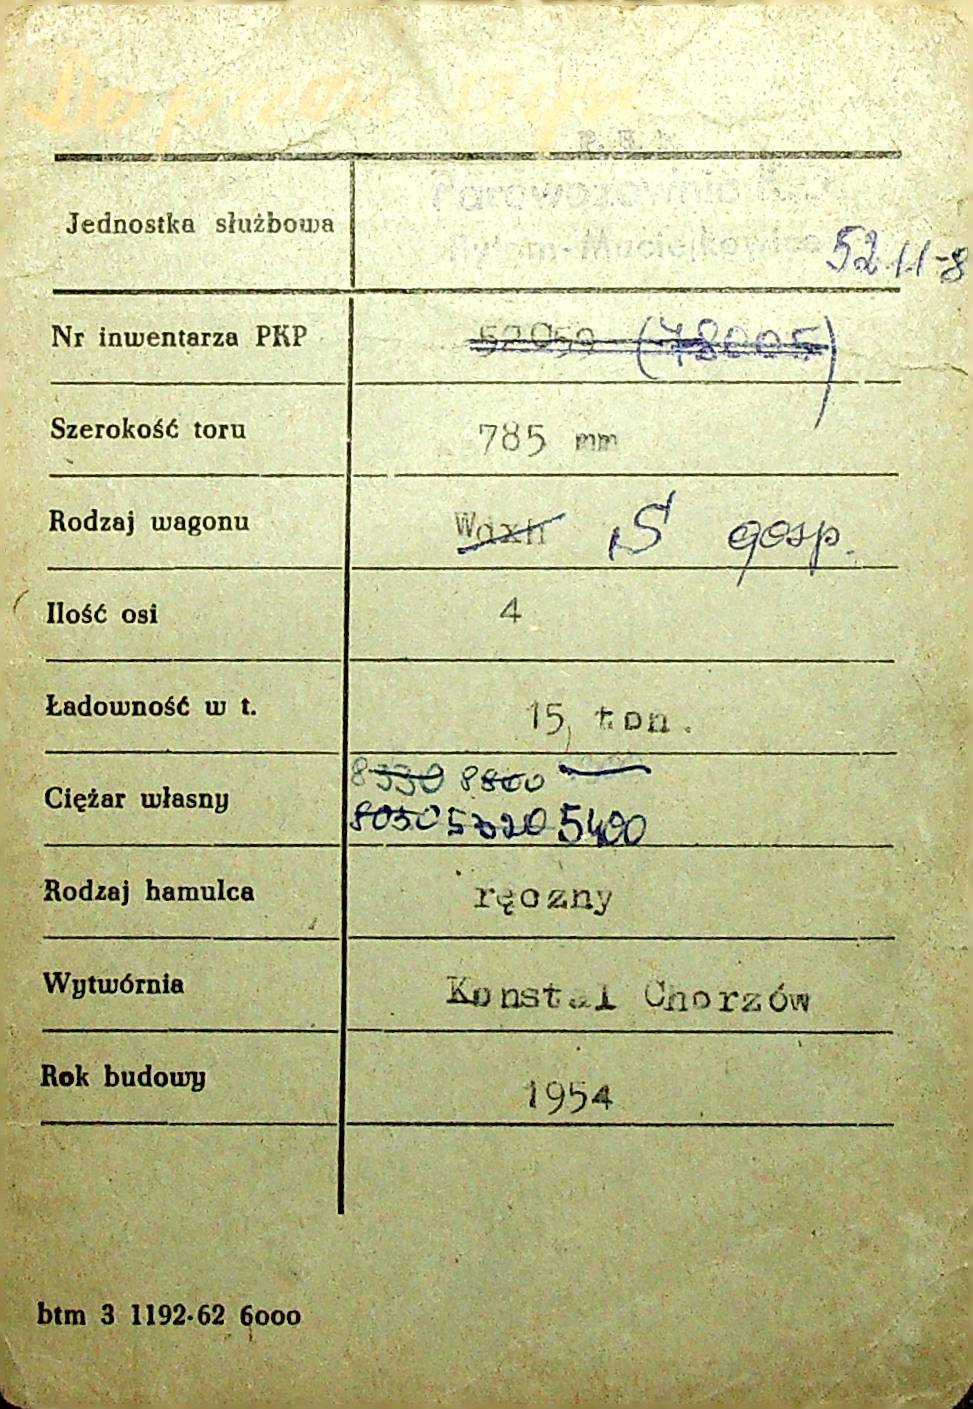 Do przew szyn
Parowozownia
Jednostka służbowa Bytom-Maciejkowice 5211-8
Nr inwentarza PKP 52059 (78005)
Szerokość toru 785 mm
Rodzaj wagonu Wdxh S gosp.
Ilość osi 4
Ładowność w t. 15 ton.
8330 8800
Ciężar własny 8050 5400
Rodzaj hamulca ręczny
Wytwórnia Konstal Chorzów
Rok budowy 1954
btm 3 1192-62 6000